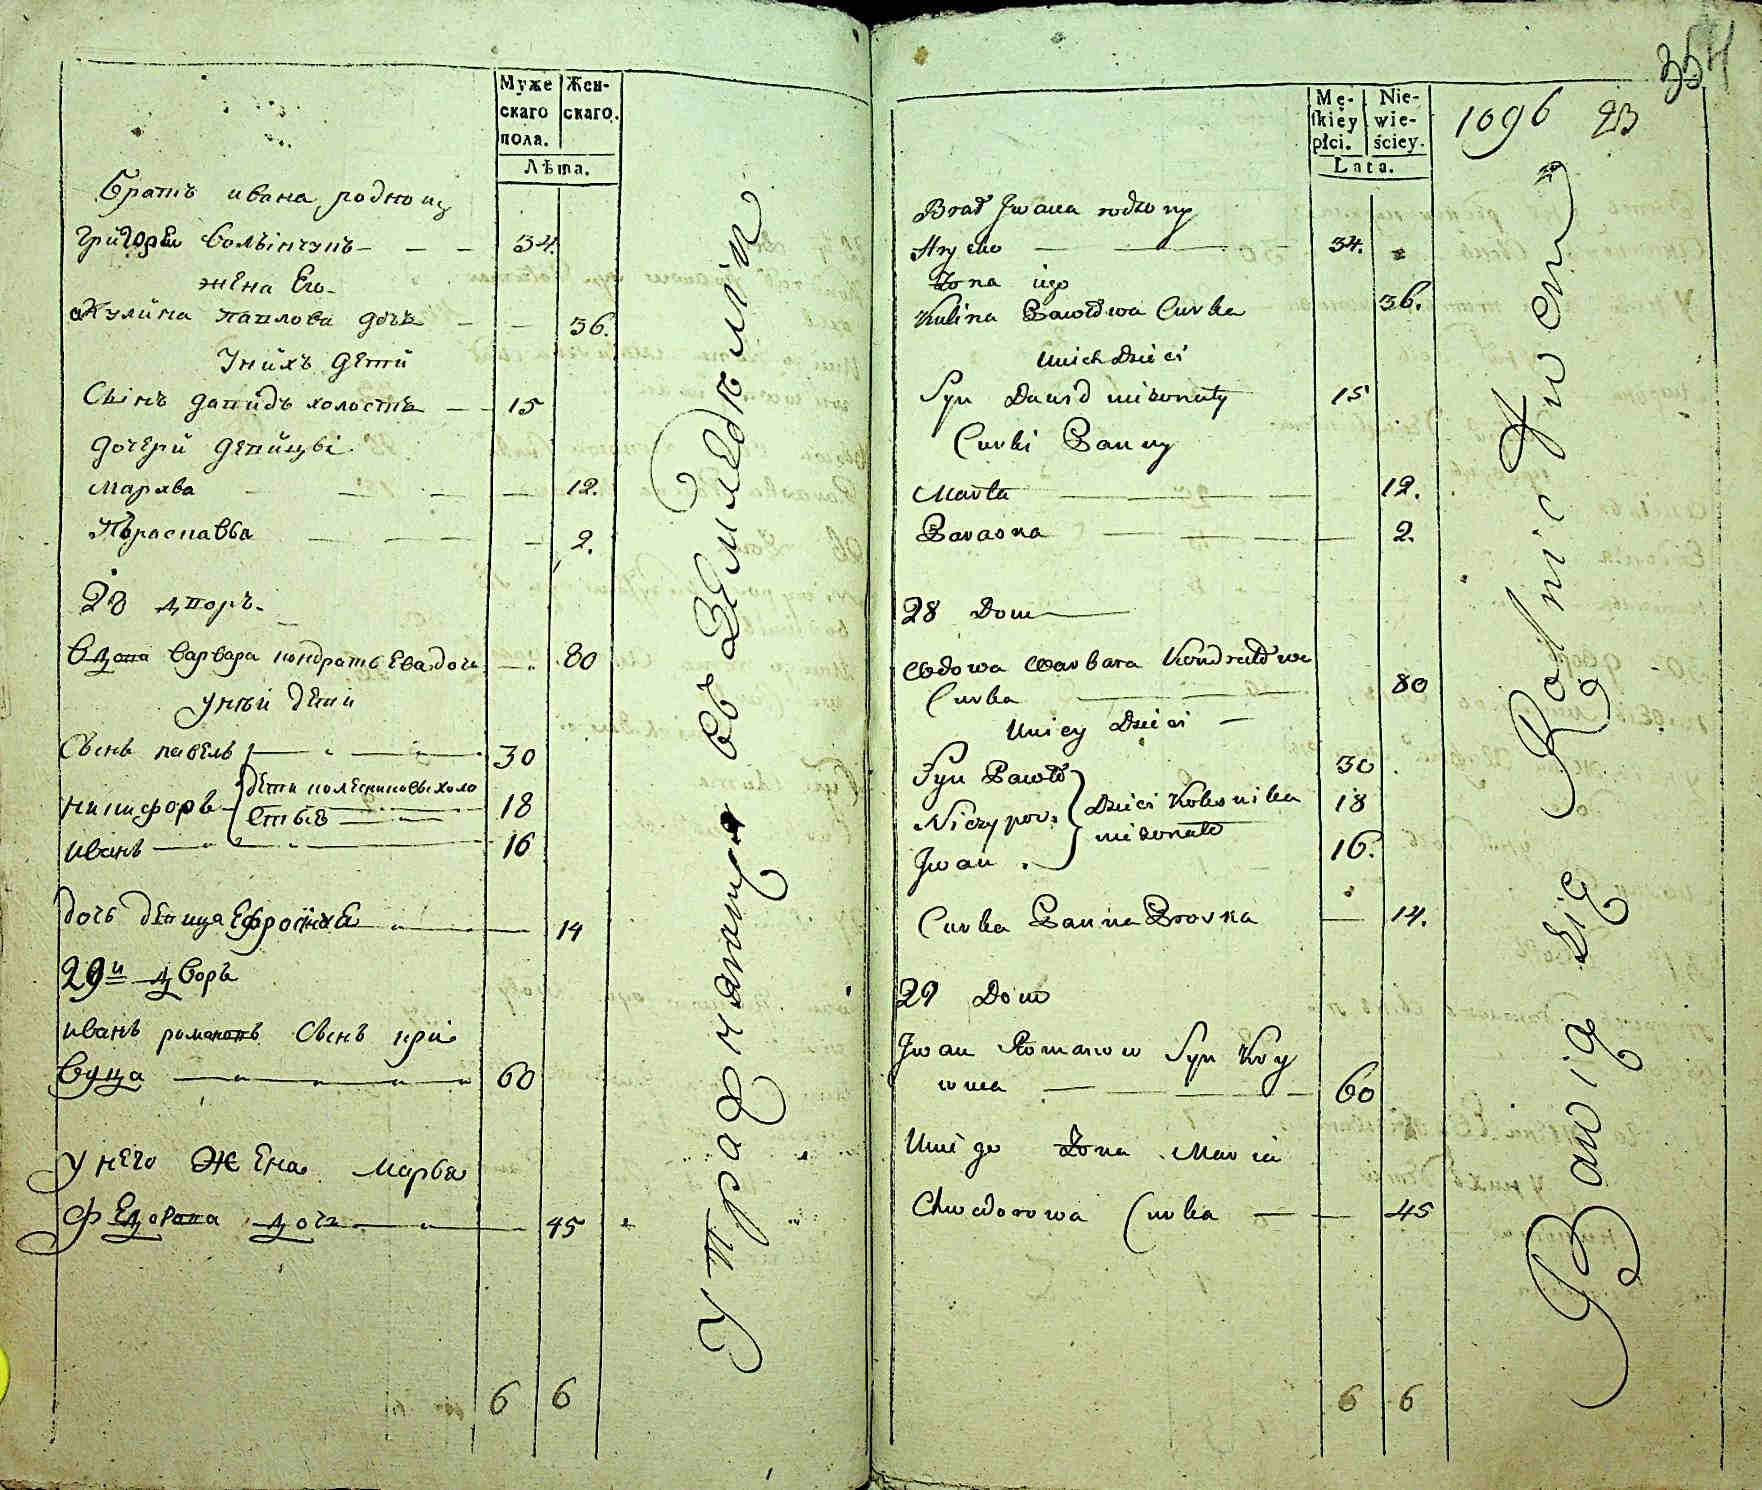 Муже
скаго
пола.
Жен-
скаго.
Лѣта.
Братъ ивана родной
григорей волынчукъ 34.
жена Его
акулина павлова дочь 36.
Унихъ дети
Сынъ давидъ холостъ 15
дочери девицы
марѳва 12.
Параскавѣя 2.
28 дворъ
вдова варвара кондратьева дочь 80
унеи дети
Сынъ павелъ 30
никифоръ дети колесниковы холо 18
стыѣ
иванъ 16
дочь девица Ефросинья 14
29й дворъ
иванъ романовъ Сынъ кри
вуца 60
у него жена марья
федорова дочь 45
6 6
Упражняютца въ Земледѣлии
354
Mę-
ſkiéy
płci.
Nie-
wie-
ściey.
Lata.
1096 23
Brat Jwana rodzony
Hryćko 34.
Żona iego
Kulina Pawłowa Curka 36.
Unich Dzieci
Syn Dawid nieżonaty 15
Curki Panny
Marta 12.
Paraska 2.
28 Dom
Wdowa Warbara Kondratowa
Curka 80
Uniey Dzieci
Syn Pawło 30
Niczypor. Dzieci Kolesnika 18
nieżonate
Jwan 16.
Curka Panna Proska 14.
29 Dom
Jwan Romanow Syn Kry
wuca 60
Uniego Żona Maria
Chwedorowa Curka 45
6 6
Bawią się Rolnictwem